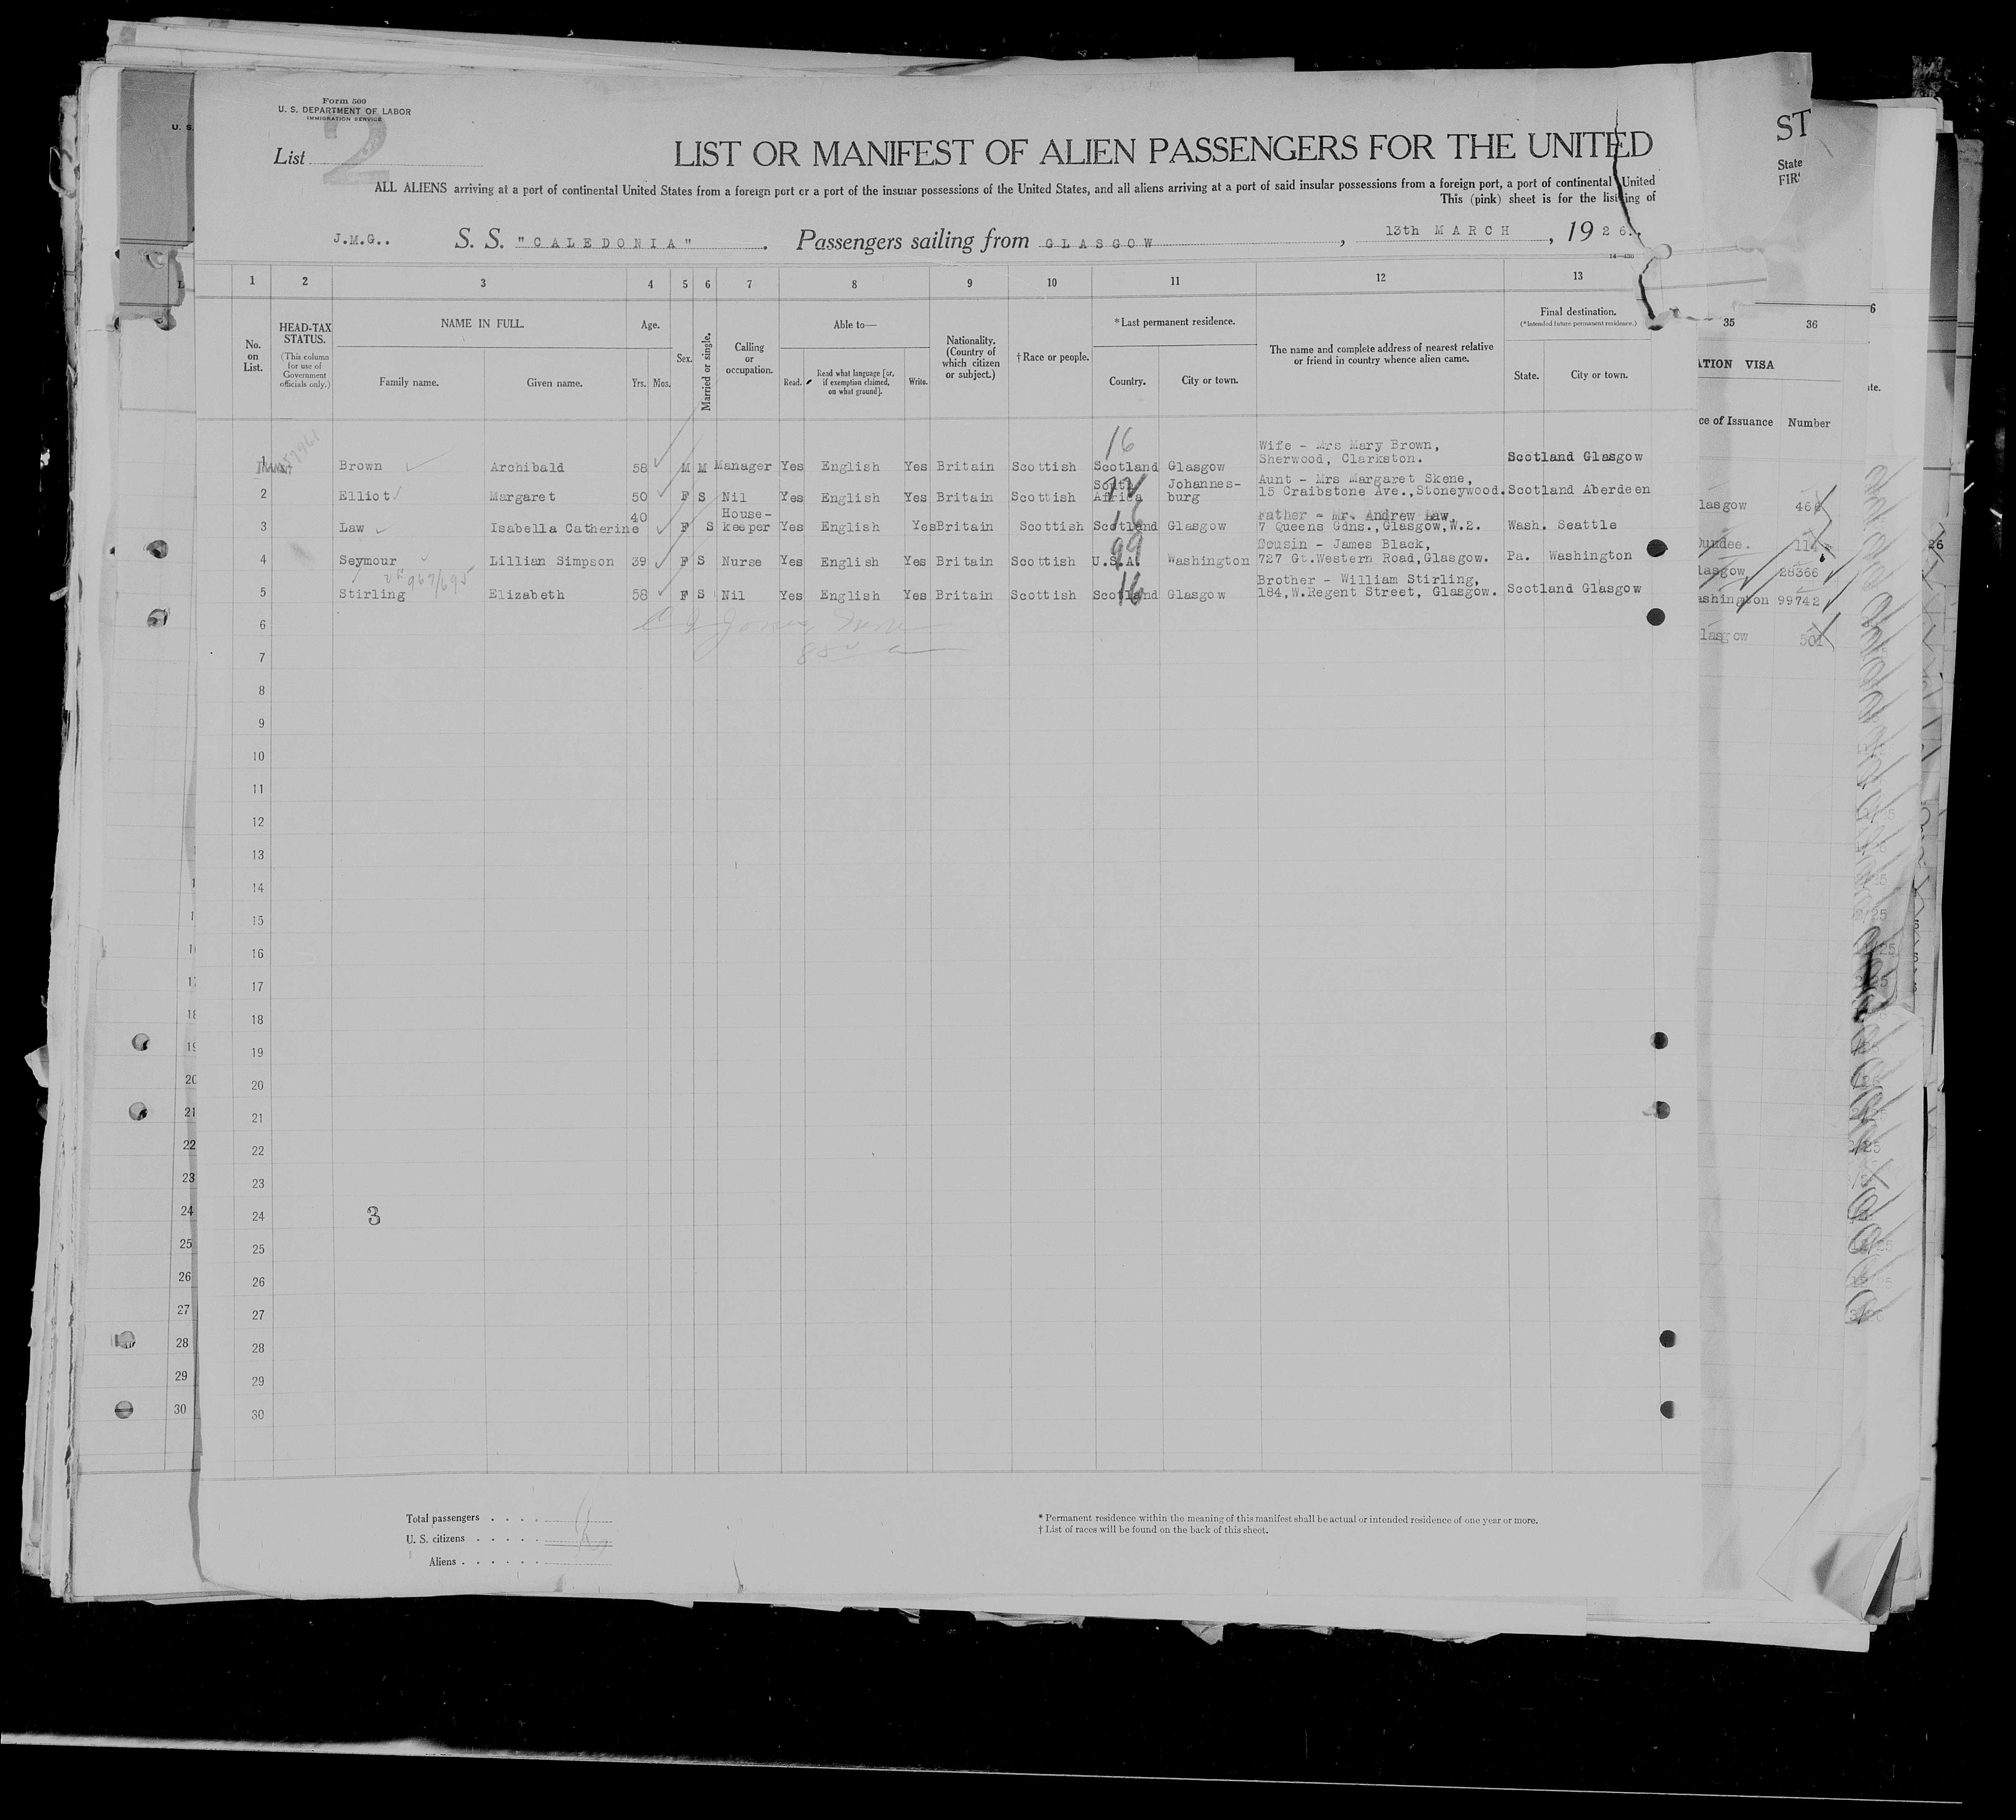 Form 500
U. S. DEPARTMENT OF LABOR
IMMIGRATION SERVICE
2
List
LIST OR MANIFEST OF ALIEN PASSENGERS FOR THE UNITED
ST
State
ALL ALIENS arriving at a port of continental United States from a foreign port or a port of the insular possessions of the United States, and all aliens arriving at a port of said insular possessions from a foreign port, a port of continental United
This (pink) sheet is for the listing of
J.M.G.. S. S. "CALEDONIA". Passengers sailing from GLASGOW, 13th MARCH, 1926.
1 2 3 4 5 6 7 8 9 10 11 12 13
35 36
No. on List.
HEAD-TAX STATUS.
(This column for use of Government officials only.)
NAME IN FULL.
Family name. Given name.
Age.
Yrs. Mos.
Sex.
Married or single.
Calling or occupation.
Able to—
Read. Read what language [or, if exemption claimed, on what ground]. Write.
Nationality. (Country of which citizen or subject.)
† Race or people.
*Last permanent residence.
Country. City or town.
The name and complete address of nearest relative or friend in country whence alien came.
Final destination.
(*Intended future permanent residence.)
State. City or town.
ATION VISA
ce of Issuance Number
16
Wife - Mrs Mary Brown,
1 Brown Archibald 58 M M Manager Yes English Yes Britain Scottish Scotland Glasgow Sherwood, Clarkston. Scotland Glasgow
South Johannes- Aunt - Mrs Margaret Skene,
2 Elliot Margaret 50 F S Nil Yes English Yes Britain Scottish Africa burg 15 Craibstone Ave.,Stoneywood. Scotland Aberdeen
40 House- Father - Mr. Andrew Law,
3 Law Isabella Catherine F S keeper Yes English Yes Britain Scottish Scotland Glasgow 7 Queens Gdns.,Glasgow,W.2. Wash. Seattle
99 Cousin - James Black,
4 Seymour Lillian Simpson 39 F S Nurse Yes English Yes Britain Scottish U.S.A. Washington 727 Gt.Western Road,Glasgow. Pa. Washington
Brother - William Stirling,
5 Stirling Elizabeth 58 F S Nil Yes English Yes Britain Scottish Scotland Glasgow 184,W.Regent Street, Glasgow. Scotland Glasgow
lasgow
Dundee.
lasgow 28366
ashington 99742
lasgow 501
6
7
8
9
10
11
12
13
14
15
16
17
18
19
20
21
22
23
24 3
25
26
27
28
29
30
Total passengers
U. S. citizens
Aliens
* Permanent residence within the meaning of this manifest shall be actual or intended residence of one year or more.
† List of races will be found on the back of this sheet.